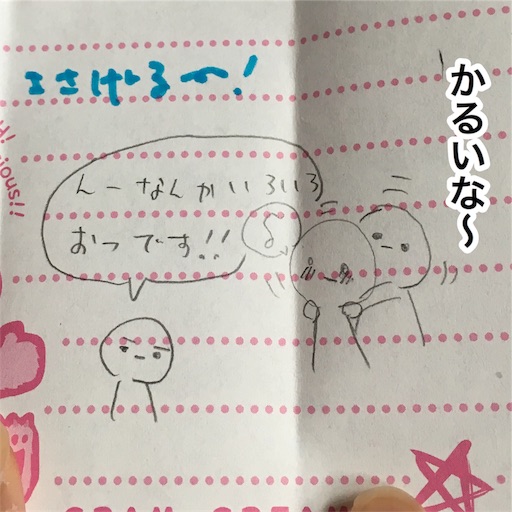 さげるー!
んーなんかいろいろ
おつです!!
かるいな〜
ious!!